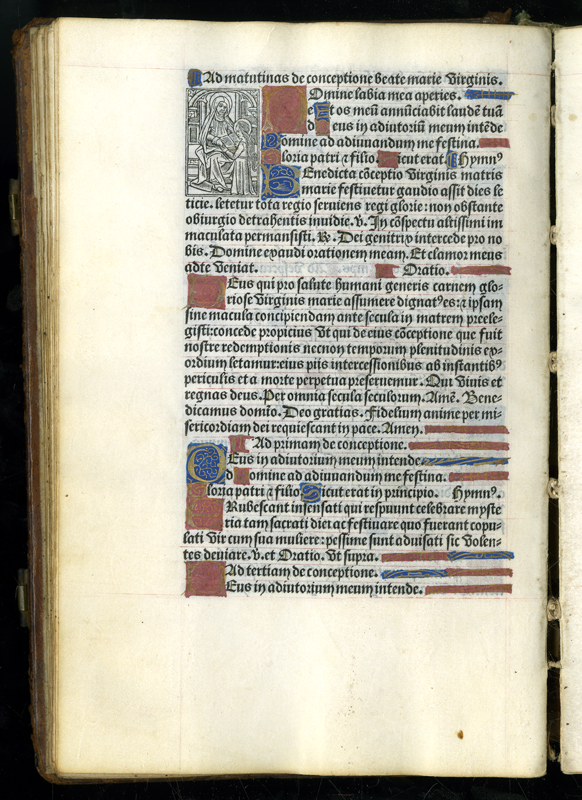 Ad matutinas de conceptione beate marie virginis.
Omine labia mea aperies.
Et os meū annūciabit laudē tuā
d eus in adiutoriū meum intēde
omine ad adiuuandum me festina.
loria patri ⁊ filio. icut erat. Hymnꝰ
Enedicta cōceptio virginis matris
marie festiuetur gaudio assit dies le
ticie. letetur tota regio seruiens regi glorie: non obstante
obiurgio detrahentis inuidie. v. In cōspectu altissimi im
maculata permansisti. R. Dei genitrix intercede pro no
bis. Domine exaudi orationem meam. Et clamor meus
ad te veniat. Oratio.
Eus qui pro salute humani generis carnem glo-
riose virginis marie assumere dignatꝰ es: ⁊ ipsam
sine macula concipiendam ante secula in matrem preele-
gisti: concede propicius vt qui de eius cōceptione que fuit
nostre redemptionis necnon temporum plenitudinis ex-
ordium letamur: eius piis intercessionibus ab instantibꝰ
periculis et a morte perpetua preseruemur. Qui viuis et
regnas deus. Per omnia secula seculorum. Amē. Bene-
dicamus domīo. Deo gratias. Fidelium anime per mi-
sericordiam dei requiescant in pace. Amen.
Ad primam de conceptione.
Eus in adiutorium meum intende.
d omine ad adiuuandum me festina.
loria patri ⁊ filio Sicut erat in principio. Hymnꝰ.
Rubescant insensati qui respuunt celebrare myste
ria tam sacrati diei ac festiuare quo fuerant copu-
lati vir cum sua muliere: pessime sunt aduisati sic volen-
tes deuiare. v. et Oratio. vt supra.
Ad tertiam de conceptione.
Eus in adiutorium meum intende.